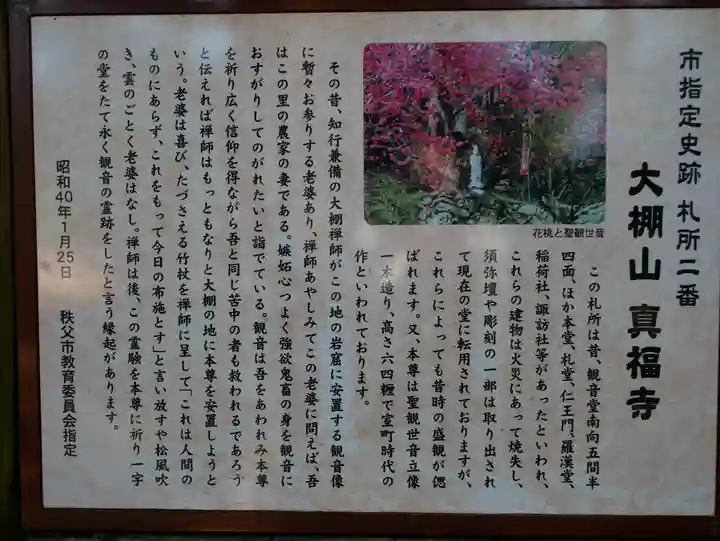 市指定史跡 札所二番
大棚山 真福寺
花桃と聖観世音
この札所は昔、観音堂南向五間半
四面、ほか本堂、札堂、仁王門、羅漢堂、
稲荷社、諏訪社等があったといわれ、
これらの建物は火災にあって焼失し、
須弥壇や彫刻の一部は取り出され
て現在の堂に転用されておりますが、
これらによっても昔時の盛観が偲
ばれます。又、本尊は聖観世音立像
一木造り、高さ六四糎で室町時代の
作といわれております。
その昔、知行兼備の大棚禅師がこの地の岩窟に安置する観音像
に暫々お参りする老婆あり、禅師あやしみてこの老婆に問えば、吾
はこの里の農家の妻である。嫉妬心つよく強欲鬼畜の身を観音に
おすがりしてのがれたいと詣でている。観音は吾をあわれみ本尊
を祈り広く信仰を得ながら吾と同じ苦中の者も救われるであろう
と伝えれば禅師はもっともなりと大棚の地に本尊を安置しようと
いう。老婆は喜び、たづさえる竹杖を禅師に呈して「これは人間の
ものにあらず、これをもって今日の布施とす」と言い放すや松風吹
き、雲のごとく老婆はなし。禅師は後、この霊験を本尊に祈り一字
の堂をたて永く観音の霊跡をしたと言う縁起があります。
昭和40年1月25日 秩父市教育委員会指定